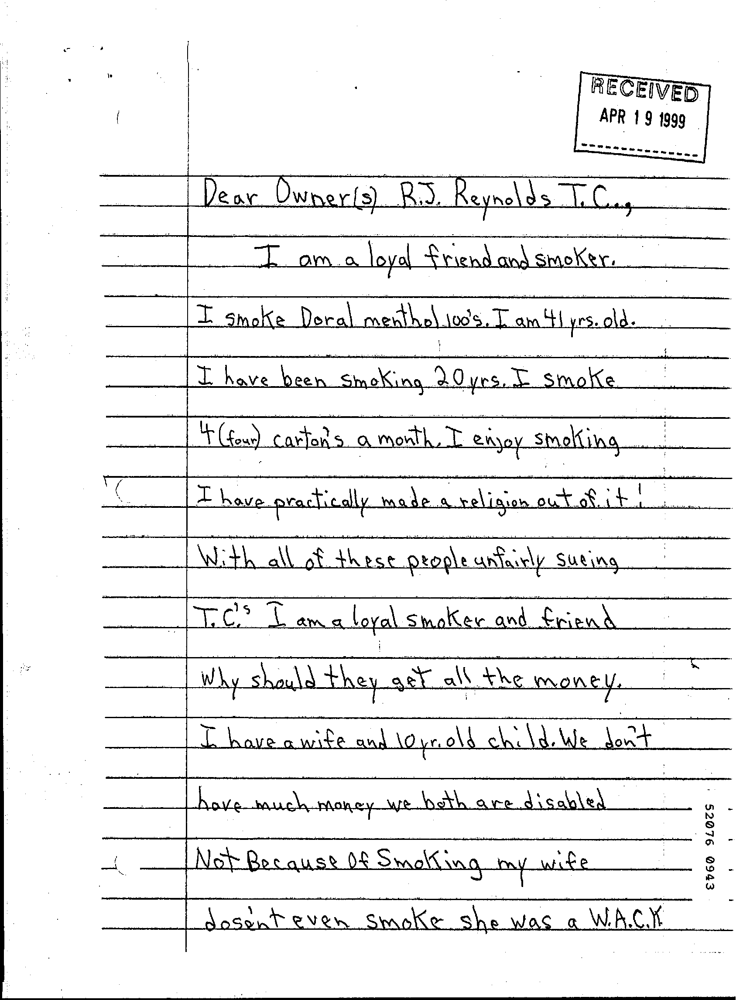 RECEIVED
APR 19 1999
Dear Owner(s) R.J. Reynolds T.C..,
I am a loyal friend and smoker.
I smoke Doral menthol 100's. I am 41 yrs. old.
I have been smoking 20 yrs. I smoke
4 (four) carton's a month. I enjoy smoking
I have practically made a religion out of it!
With all of these people unfairly sueing
T.C.'s I am a loyal smoker and friend
Why should they get all the money.
I have a wife and 10 yr. old child. We don't
have much money we both are disabled
Not Because Of Smoking my wife
dosen't even smoke she was a W.A.C.K
52076 0943